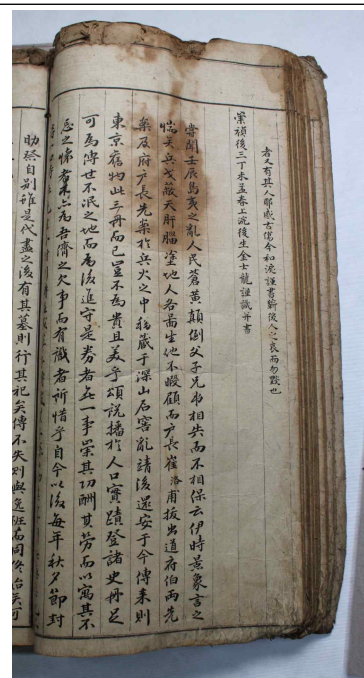 者又有其人耶感古傷今和淚謹書斷後人之哀而勿毀也
崇禎後三丁未孟春上浣後生金士龍謹識并書
嘗聞壬辰島夷之亂人民蒼黃顚倒父子兄弟相失而不相保云伊時景象言之
惴矣兵戈蔽天肝腦塗地人各啚生他不暇顧而戶長崔洛甫拔出道府伯両先
案及府戶長先案於兵火之中移藏于深山石窖亂靖後還安于今傳來則
東京舊物此三冊而已豈不爲貴且美乎頌說播於人口實蹟登諸史冊足
可爲傳世不泯之地而爲後進守是券者五一事崇其功酬其勞而以寓其不
忘之懷者亦爲吾儕之欠事而有識者所惜乎自今以後每年秋夕節封
助祭自別雖是代盡之後有其墓則行其祀矣傳不失則與